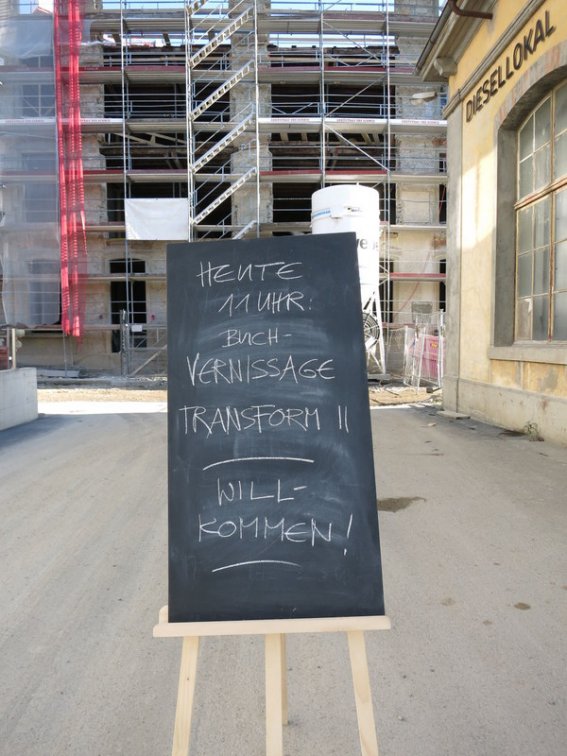 DIESELLOKAL
HEUTE
11 UHR:
BUCH-
VERNISSAGE
TRANSFORM II
WILL-
KOMMEN!